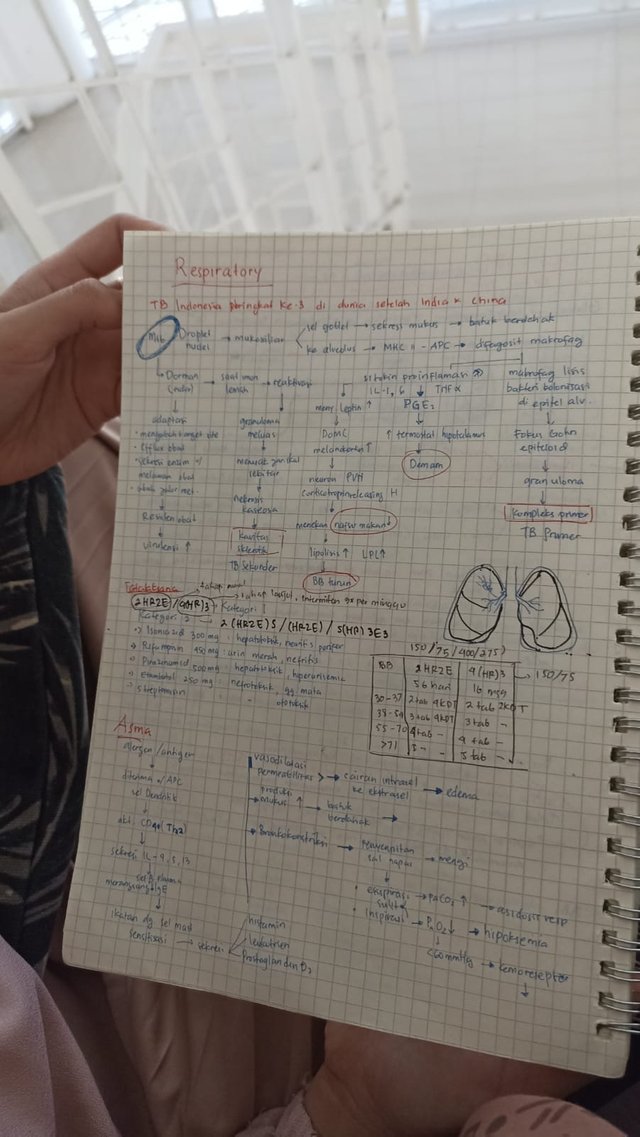 Respiratory
TB Indonesia peringkat ke-3 di dunia setelah India & China
Mtb Droplet nuclei → mukosilier
sel goblet → sekresi mukus → batuk berdahak
ke alveolus → MHC II - APC → difagosit makrofag
Dorman → saat imun lemah → reaktivasi
sitokin proinflamasi
IL-1, 6 TNF α
makrofag lisis
bakteri kolonisasi
di epitel alv.
adaptasi
efflux obat
sekresi enzim
melawan obat
Resisten obat
virulensi ↑
granuloma
meluas
nekrosis
kaseosa
kavitas
sklerotik
TB Sekunder
leptin ↑
POMC
melanokortin ↑
neuron PVN
corticotropin releasing H
menekan nafsu makan ↓
lipolisis ↑ LPL ↑
BB turun
PGE2
↑ termostat hipotalamus
Demam
Fokus Gohn
epiteloid
granuloma
Kompleks primer
TB Primer
Tatalaksana
tahap awal
2HRZE / 4(HR)3 - Kategori 1
tahap lanjut, intermiten 3x per minggu
Kategori 2 :
2(HRZE)S / (HRZE) / 5(HR)3E3
Isoniazid 300 mg : hepatotoksik, neuritis perifer
Rifampisin 450 mg : urin merah, nefritis
Pirazinamid 500 mg : hepatotoksik, hiperurisemia
Etambutol 250 mg : nefrotoksik, gg. mata
Streptomisin ototoksik
(150/75/400/275)
BB 2HRZE 4(HR)3 → 150/75
56 hari 16 mgg
30-37 2 tab 4KDT 2 tab 2KDT
38-54 3 tab 4KDT 3 tab -
55-70 4 tab - 4 tab -
>71 5 - - 5 tab -
Asma
alergen/antigen
diterima o/ APC
sel Dendritik
akt. CD4+ (Th2)
sekresi IL-4, 5, 13
sel B plasma
merangsang IgE
ikatan dg sel mast
sensitisasi → sekresi
histamin
leukotrien
Prostaglandin D2
vasodilatasi
permeabilitas > → cairan intrasel → edema
ke ekstrasel
produksi
mukus ↑ → batuk
berdahak →
Bronkokonstriksi → penyempitan → mengi
sal. napas
ekspirasi → PaCO2 ↑ → asidosis resp
sulit
inspirasi → PaO2 ↓ → hipoksemia
<60 mmHg → kemoreseptor